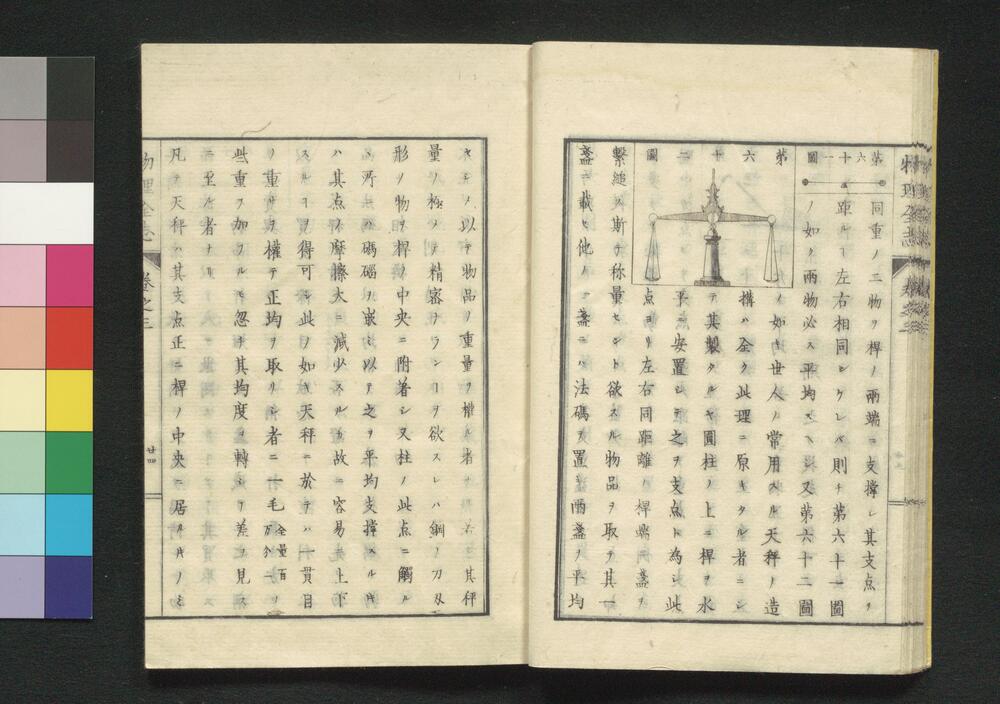 同重ノ二物ヲ桿ノ兩端ニ支撑シ其支点ヲ
距ルヿ左右相同シケレバ則チ第六十一圖
ノ如ク兩物必ス平均スベシ又第六十二圖
ノ如キ世人ノ常用スル天秤ノ造
構ハ全ク此理ニ原キタル者ニシ
テ其製タルヤ圓柱ノ上ニ桿ヲ水
平ニ安置シテ之ヲ支点ト為シ此
点ヨリ左右同距離ノ桿端ニ兩盞ヲ
繫縋ス斯テ称量セント欲スル物品ヲ取テ其一
盞ニ載セ他ノ一盞ニハ法碼ヲ置キ兩盞ヲ平均
第六十一圖
第六十二圖
セシメ以テ物品ノ重量ヲ權ル者ナリ若シ其秤
量ノ極メテ精密ナランヿヲ欲スレハ鋼ノ刀刄
形ノ物ヲ桿ノ中央ニ附著シ又柱ノ此点ニ觸ル
ヽ所ハ碼碯ヲ嵌シ以テ之ヲ平均支撑スル時
ハ其点ノ摩擦大ニ減少スルガ故ニ容易ニ上下
スルヿヲ得可シ此ノ如キ天秤ニ於テハ一貫目
ノ重サヲ權テ正均ヲ取リシ者ニ一毛全量百万分一ノ
些重ヲ加フルモ忽チ其均度ヲ轉シテ差ヲ見ス
ニ至ル者ナリ
凡ソ天秤ハ其支点正ニ桿ノ中央ニ居ル時ノミ
物理全志
卷之三
廿四